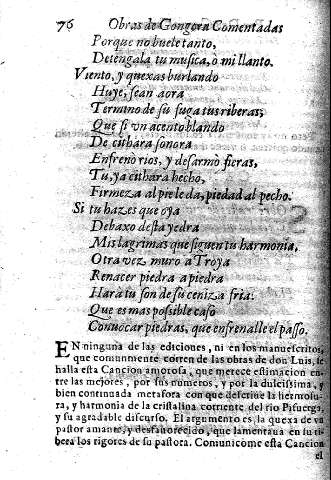 76 Obras de Gongora Comentadas
Porque no buele tanto,
Detengala tu musica, ò mi llanto.
Viento, y quexas burlando
Huye, sean aora
Termino de su fuga tus riberas;
Que si un acento blando
De cithara sonora
Enfrenò rios, y desarmò fieras,
Tu, ya cithara hecho,
Firmeza al pie le da, piedad al pecho.
Si tu hazes que oya
Debaxo desta yedra
Mis lagrimas que siguen tu harmonia,
Otra vez muro a Troya
Renacer piedra a piedra
Harà tu son de su ceniza fria:
Que es mas possible caso
Convocar piedras, que enfrenalle el passo.
EN ninguna de las ediciones, ni en los manuescritos,
que comunmente corren de las obras de don Luis, se
halla esta Cancion amorosa, que merece estimacion en-
tre las mejores, por sus numeros, y por la dulcissima, y
bien continuada metafora con que descrine la hermosu-
ra, y harmonia de la cristalina corriente del rio Pisuerga,
y su agradable discurso. El argumento es la quexa de vn
pastor amante, y desfauorecido, que lamentaua en su ri-
bera los rigores de su pastora. Comunicome esta Cancion
el